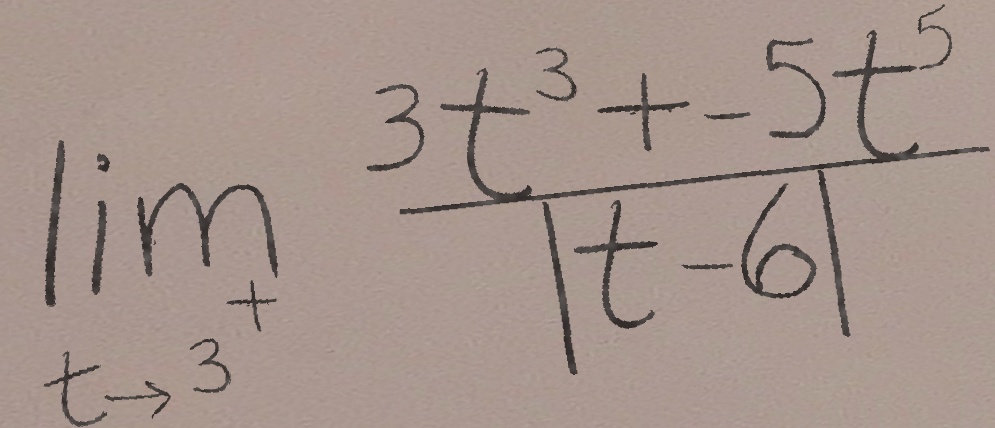 \lim_{t \to 3^+} \frac{3t^3 + -5t^5}{|t-6|}